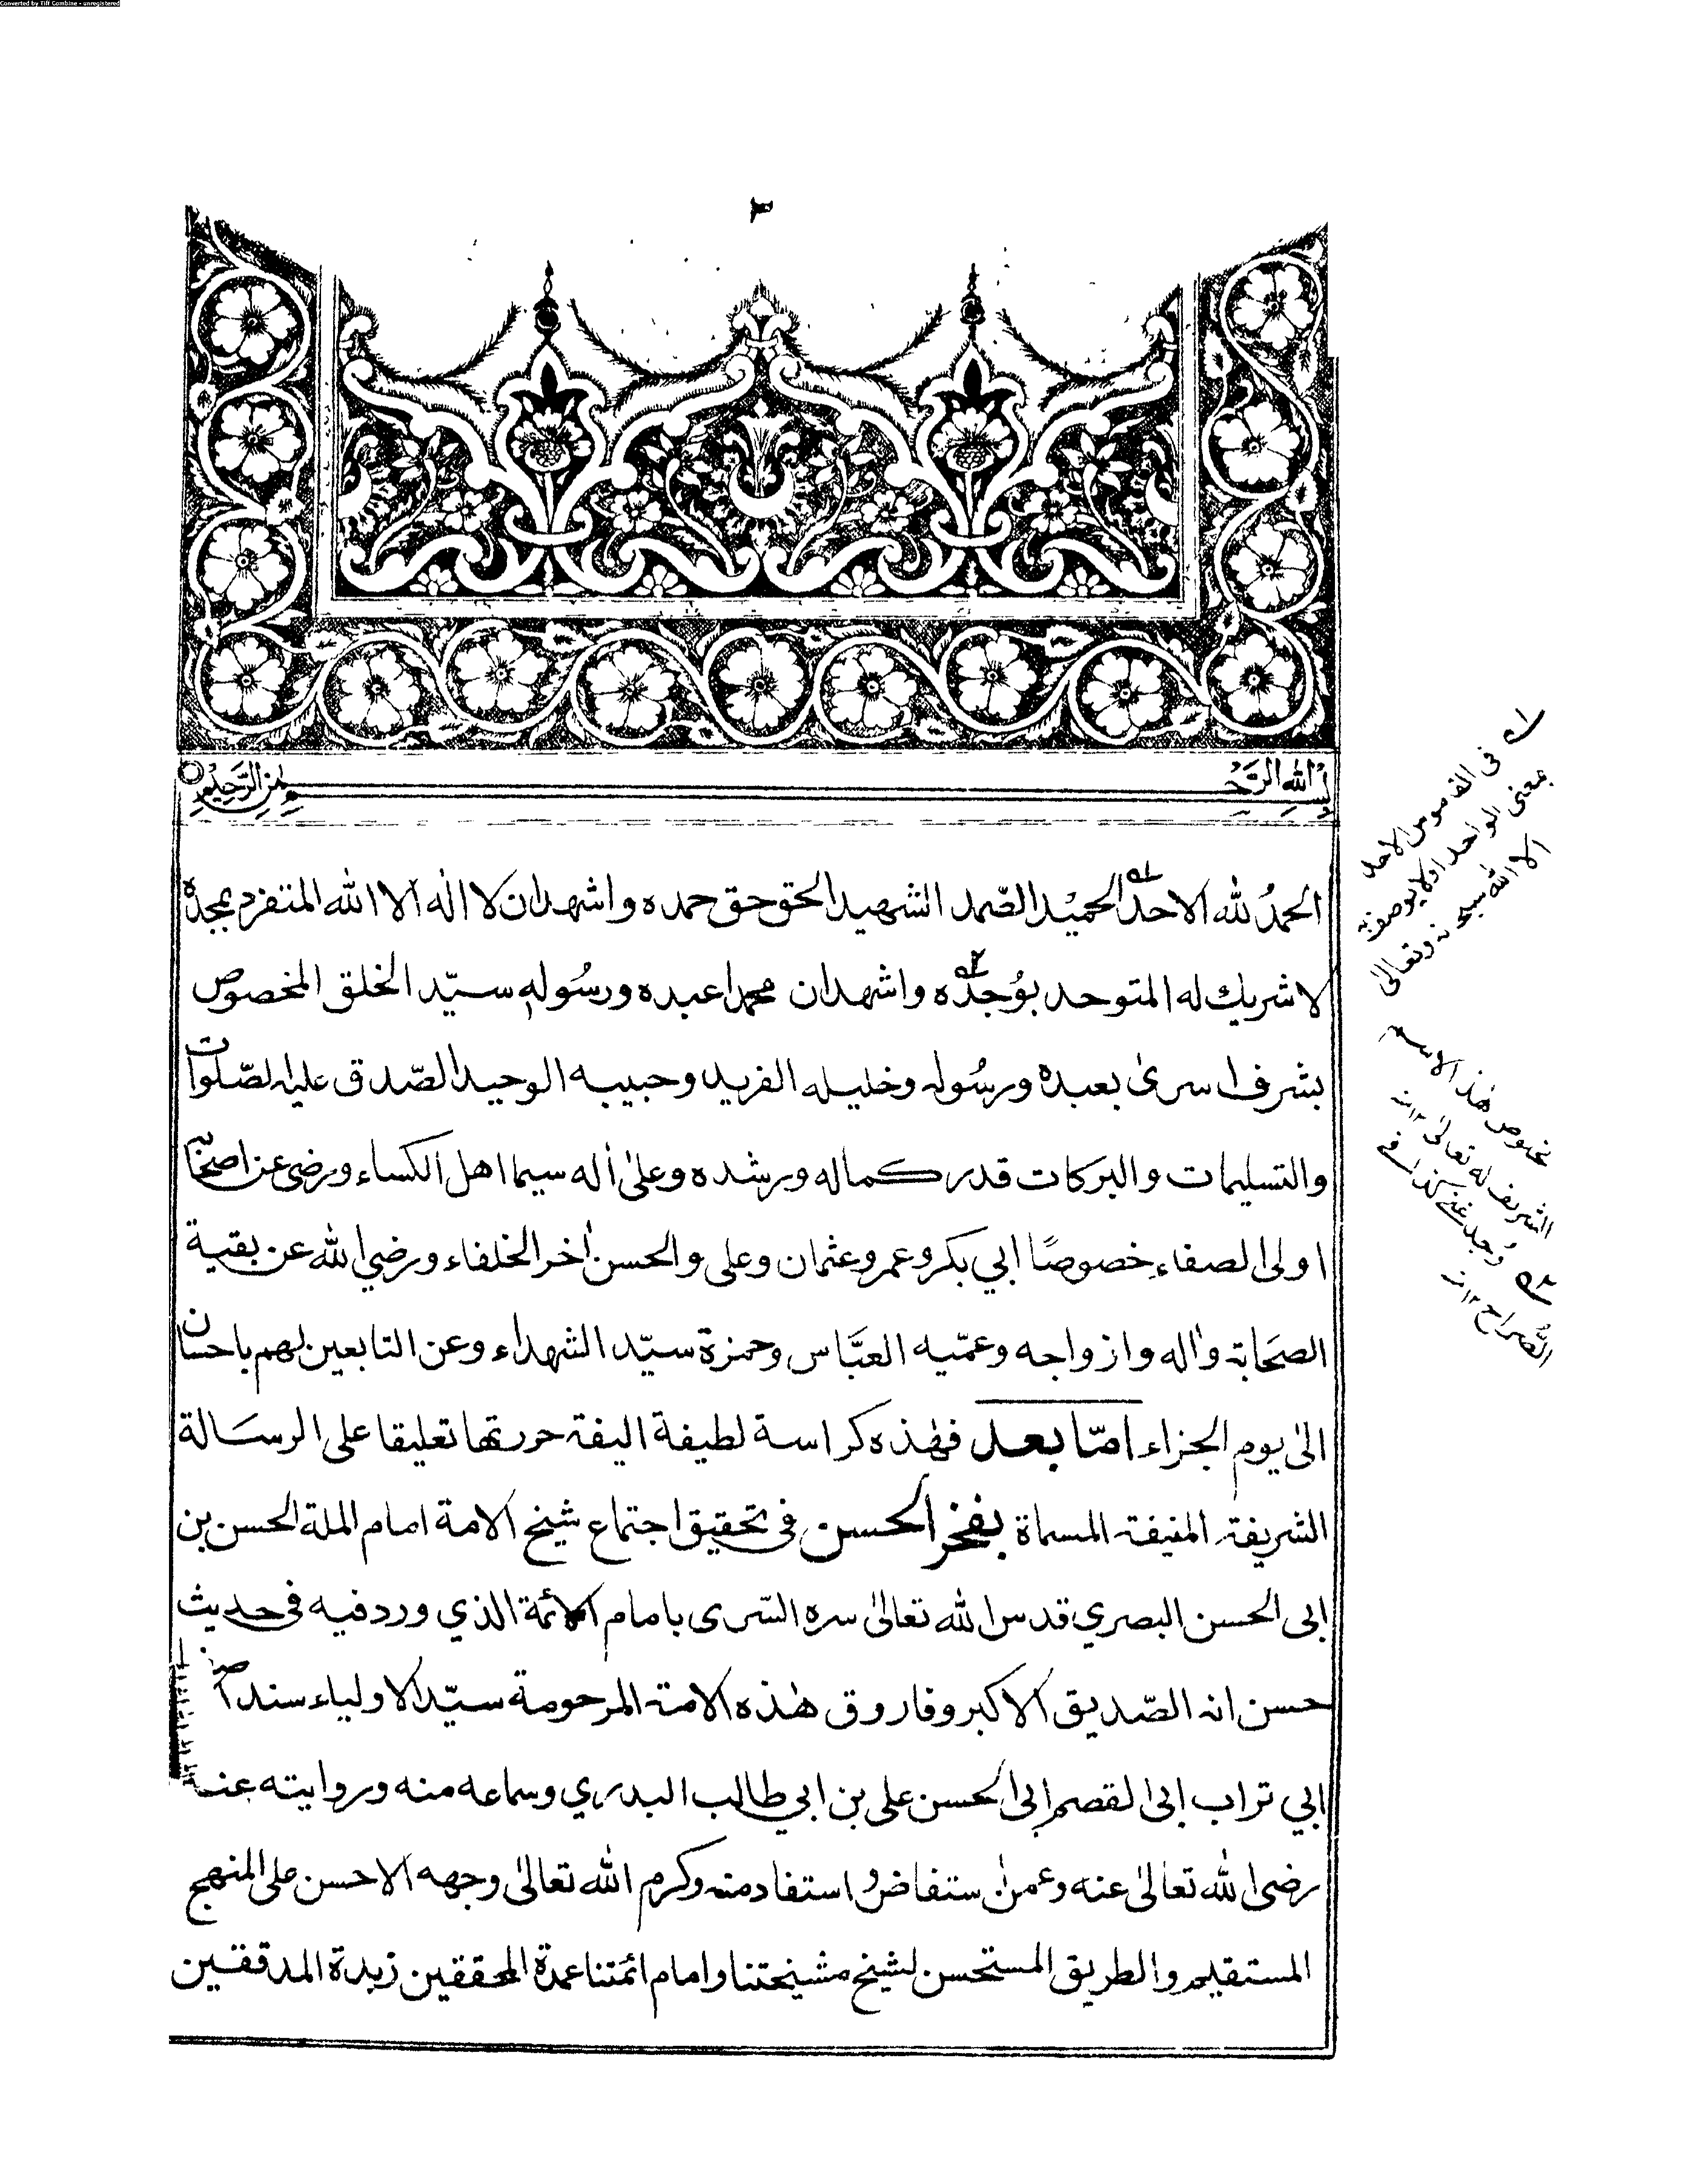 Converted by Tiff Combine - unregistered
٣
بسم الله الرحمن الرحيم
الحمدُ لله الاحد الحميد الصّمد الشهيد الحق حق حمده واشهد ان لا اله الا الله المتفرد بمجده
لا شريك له المتوحد بوُجده واشهد ان محمدا عبده ورسُوله سيّد الخلق المخصوص
بشرف اسرىٰ بعبده ورسُوله وخليله الفريد وحبيبه الوحيد الصّدق عليه الصّلوات
والتسليمات والبركات قدر كماله ورشده وعلىٰ اٰله سيما اهل الكساء ورضى عن اصحابه
اولى الصفاء خصوصًا ابي بكر وعمر وعثمان وعلى والحسن اٰخر الخلفاء ورضي الله عن بقية
الصحابة واٰله وازواجه وعمّيه العبَّاس وحمزة سيّد الشهداء وعن التابعين لهم باحسان
الىٰ يوم الجزاء امّا بعد فهٰذه كراسة لطيفة اليفة حررتها تعليقا على الرسَالة
الشريفة المنيفة المسماة بفخر الحسن فى تحقيق اجتماع شيخ الامة امام الملة الحسن بن
ابى الحسن البصري قدس الله تعالىٰ سره السّرى بامام الائمة الذي ورد فيه فى حديث
حسن انه الصّديق الاكبر وفاروق هٰذه الامة المرحومة سيّد الاولياء سند
ابي تراب ابى القصم ابى الحسن على بن ابي طالب البدري وسماعه منه وروايته عنه
رضى الله تعالىٰ عنه وعمن استفاض واستفاد منه وكرم الله تعالىٰ وجهه الاحسن على المنهج
المستقيم والطريق المستحسن لشيخ مشيختنا وامام ائمتنا عمدة المحققين زبدة المدققين
١ فى القاموس الاحد
بمعنى الواحد اولا يوصف به
الا الله سبحانه وتعالىٰ
لخلوص هٰذا الاسم
الشريف له تعالىٰ ١٢
٢ وُجد كذا فى
الصُّراح ١٢